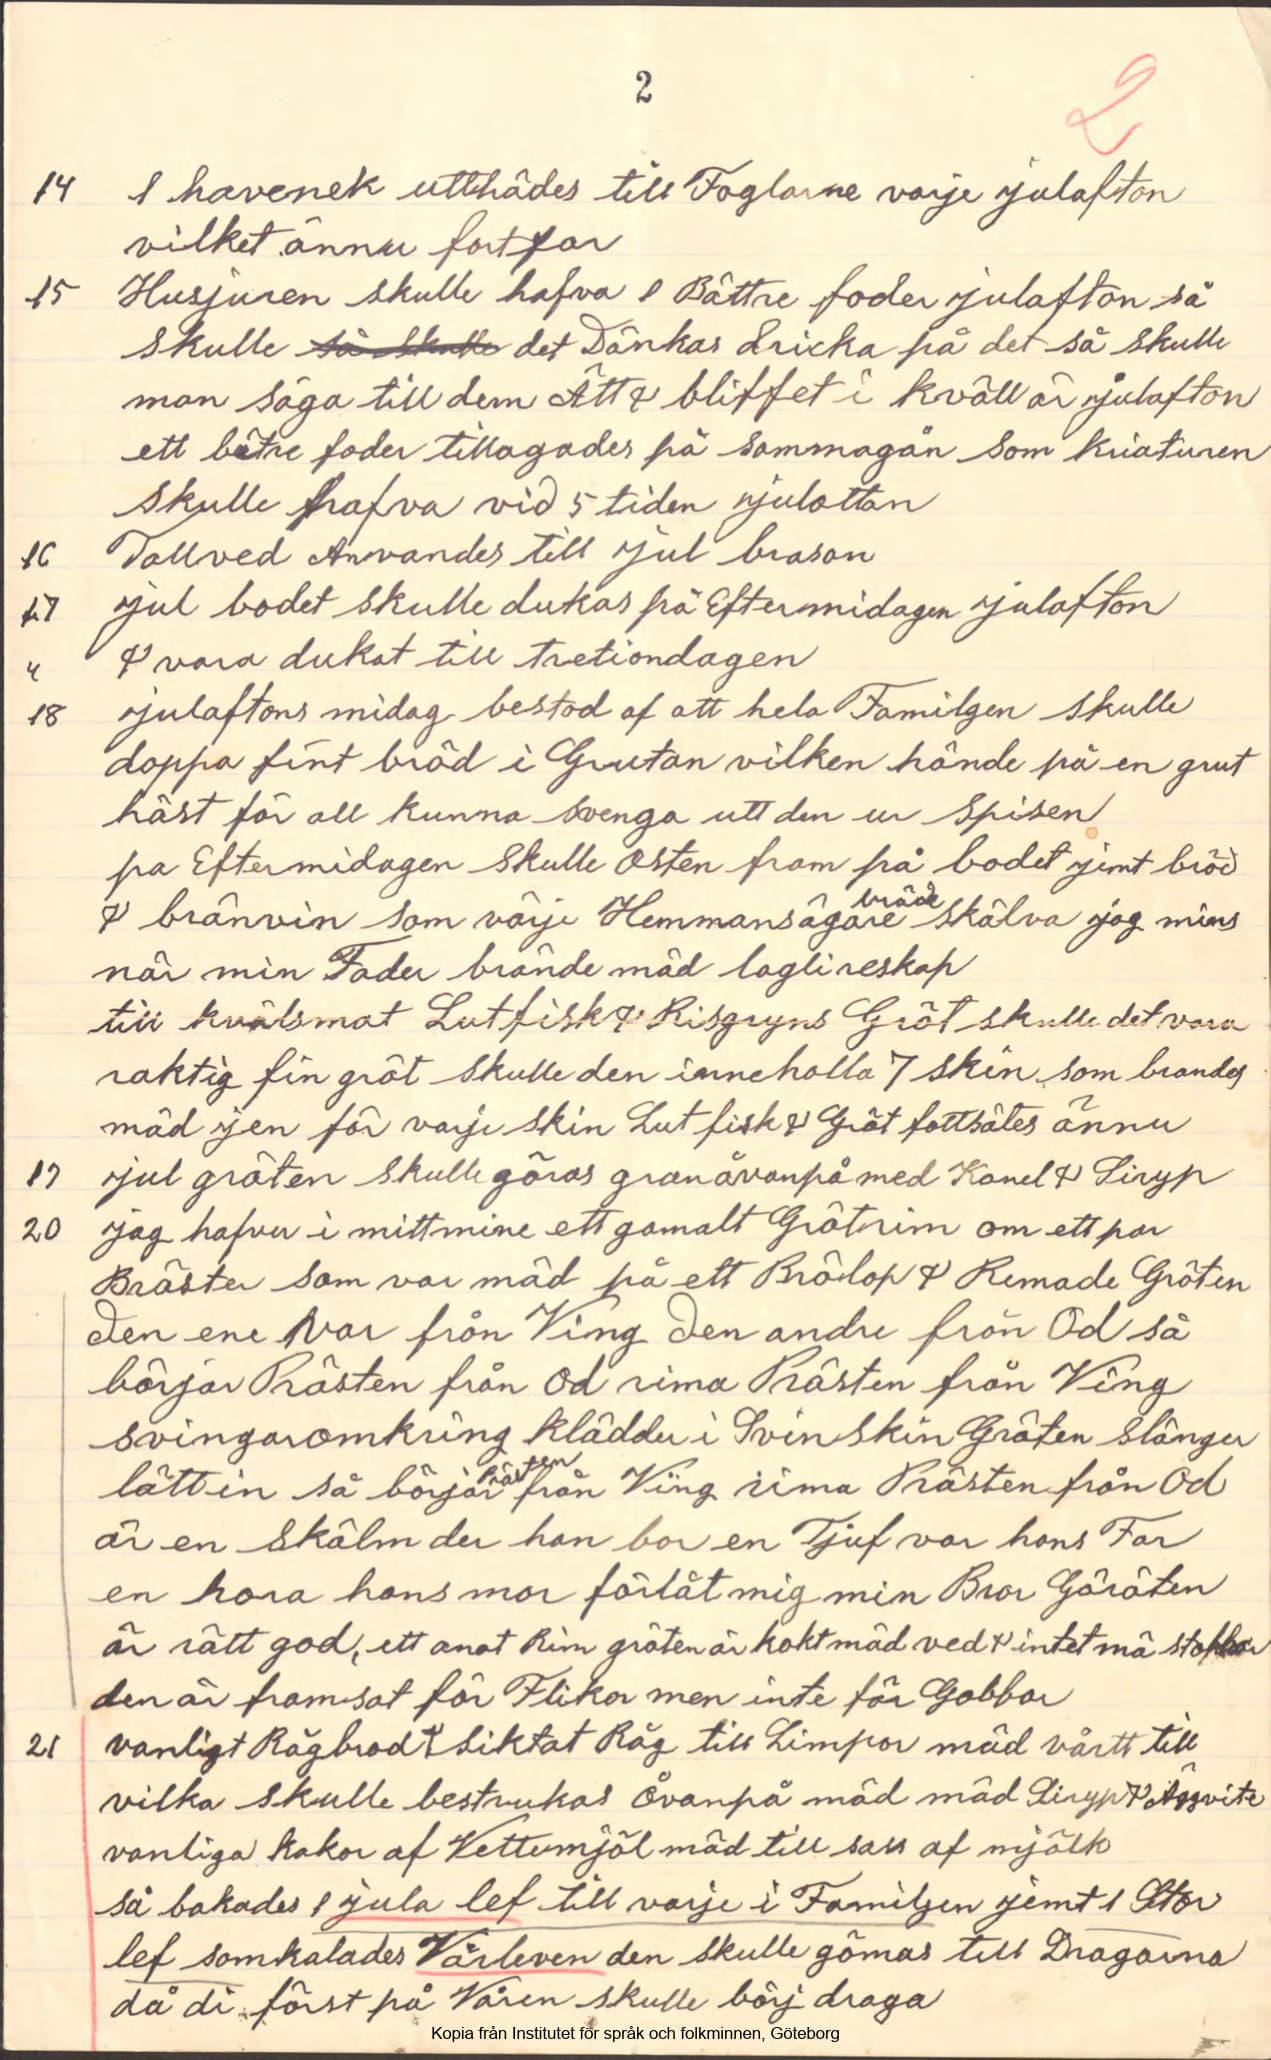 2
2
14 1 havenek utthädes till Foglarne varje julafton
vilket ännu fortfar
15 Husjuren skulle hafva 1 Bättre foder julafton så
skulle så skulle det Dänkas dricka på det så skulle
man säga till dem Ätt & bliffet i kväll är julafton
ett bätre foder tillagades på sammagån som kriaturen
skulle hafva vid 5 tiden julottan
16 Tallved Anvandes till jul brason
17 jul bodet skulle dukas på Eftermidagen julafton
" & vara dukat till tretiondagen
18 julaftons midag bestod af att hela Familgen skulle
doppa fint bröd i Grutan vilken hände på en grut
häst för all kunna svenga utt den ur spisen
pa Eftermidagen skulle Osten fram på bodet jimt bröd
& bränvin som värje Hemmansägare bräde skälva jag mins
när min Fader brände mäd lagli reskap
till kvälsmat Lutfisk & Risgryns Gröt skulle det vara
raktig fin gröt skulle den inneholla 7 skin som brandes
mäd jen för varje skin Lutfisk & Gröt fottsätes ännu
19 jul gröten skulle göras gran åvanpå med Kanel & Siryp
20 jag hafver i mitt mine ett gamalt Grötrim om ett par
Bräster som var mäd på ett Brölop & Remade Gröten
den ene var från Ving den andre från Od så
börjar Prästen från Od rima Prästen från Ving
svingar omkring klädder i Svinskin Gröten slänger
lätt in så börjar Prästen från Ving rima Prästen från Od
är en skälm der han bor en Tjuf var hans Far
en hora hans mor förlåt mig min Bror Göröten
är rätt god, ett anat Rim gröten är kokt mäd ved & intet mä stobbar
den är framsat för Flikor men inte för Gobbar
21 vanligt Rågbrod & siktat Råg till Limpor mäd vårtt till
vilka skulle bestrukas Åvanpå mäd mäd Siryp & Äggvite
vanliga kakor af Vettemjöl mäd till sass af mjölk
så bakades 1 jula lef till varje i Familjen jemt 1 Stor
lef som kalades Vårleven den skulle gömas till Dragarna
då di först på Våren skulle börj draga
Kopia från Institutet för språk och folkminnen, Göteborg